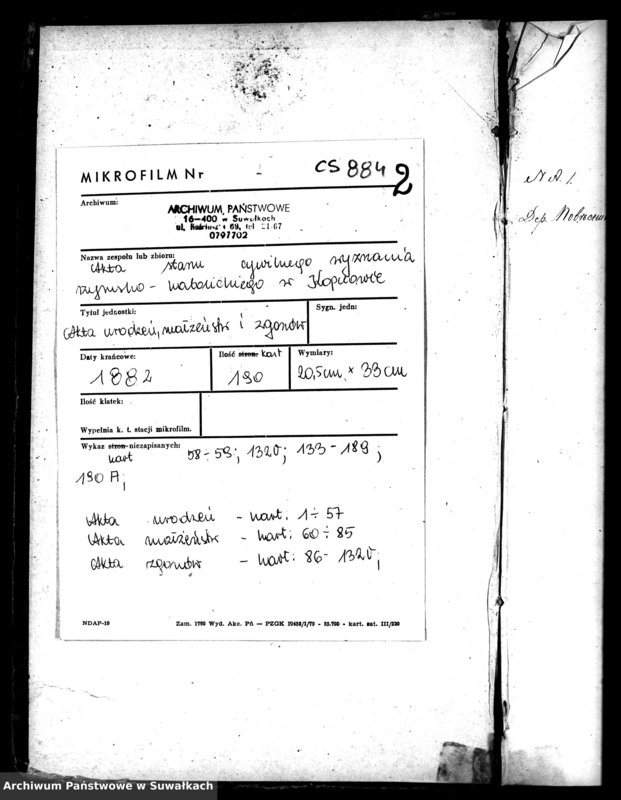 MIKROFILM Nr - CS 884 2
Archiwum:
ARCHIWUM PAŃSTWOWE
16-400 w Suwałkach
ul. Kościuszki 69, tel 21-67
0797702
Nazwa zespołu lub zbioru:
Akta stanu cywilnego wyznania
rzymsko-katolickiego w Kopciowie
Tytuł jednostki:
Sygn. jedn:
Akta urodzeń, małżeństw i zgonów
Daty krańcowe:
Ilość stron: kart
Wymiary:
1882
190
20,5cm × 33cm
Ilość klatek:
Wypełnia k. t. stacji mikrofilm.
Wykaz stron niezapisanych:
kart 58÷59; 132v; 133-189;
190 A;
Akta urodzeń - kart: 1÷57
Akta małżeństw - kart: 60÷85
Akta zgonów - kart: 86-132v;
NDAP-10
Zam. 1760 Wyd. Akc. Pń — PZGK
kart. sat. III/220
Dep.
Archiwum Państwowe w Suwałkach